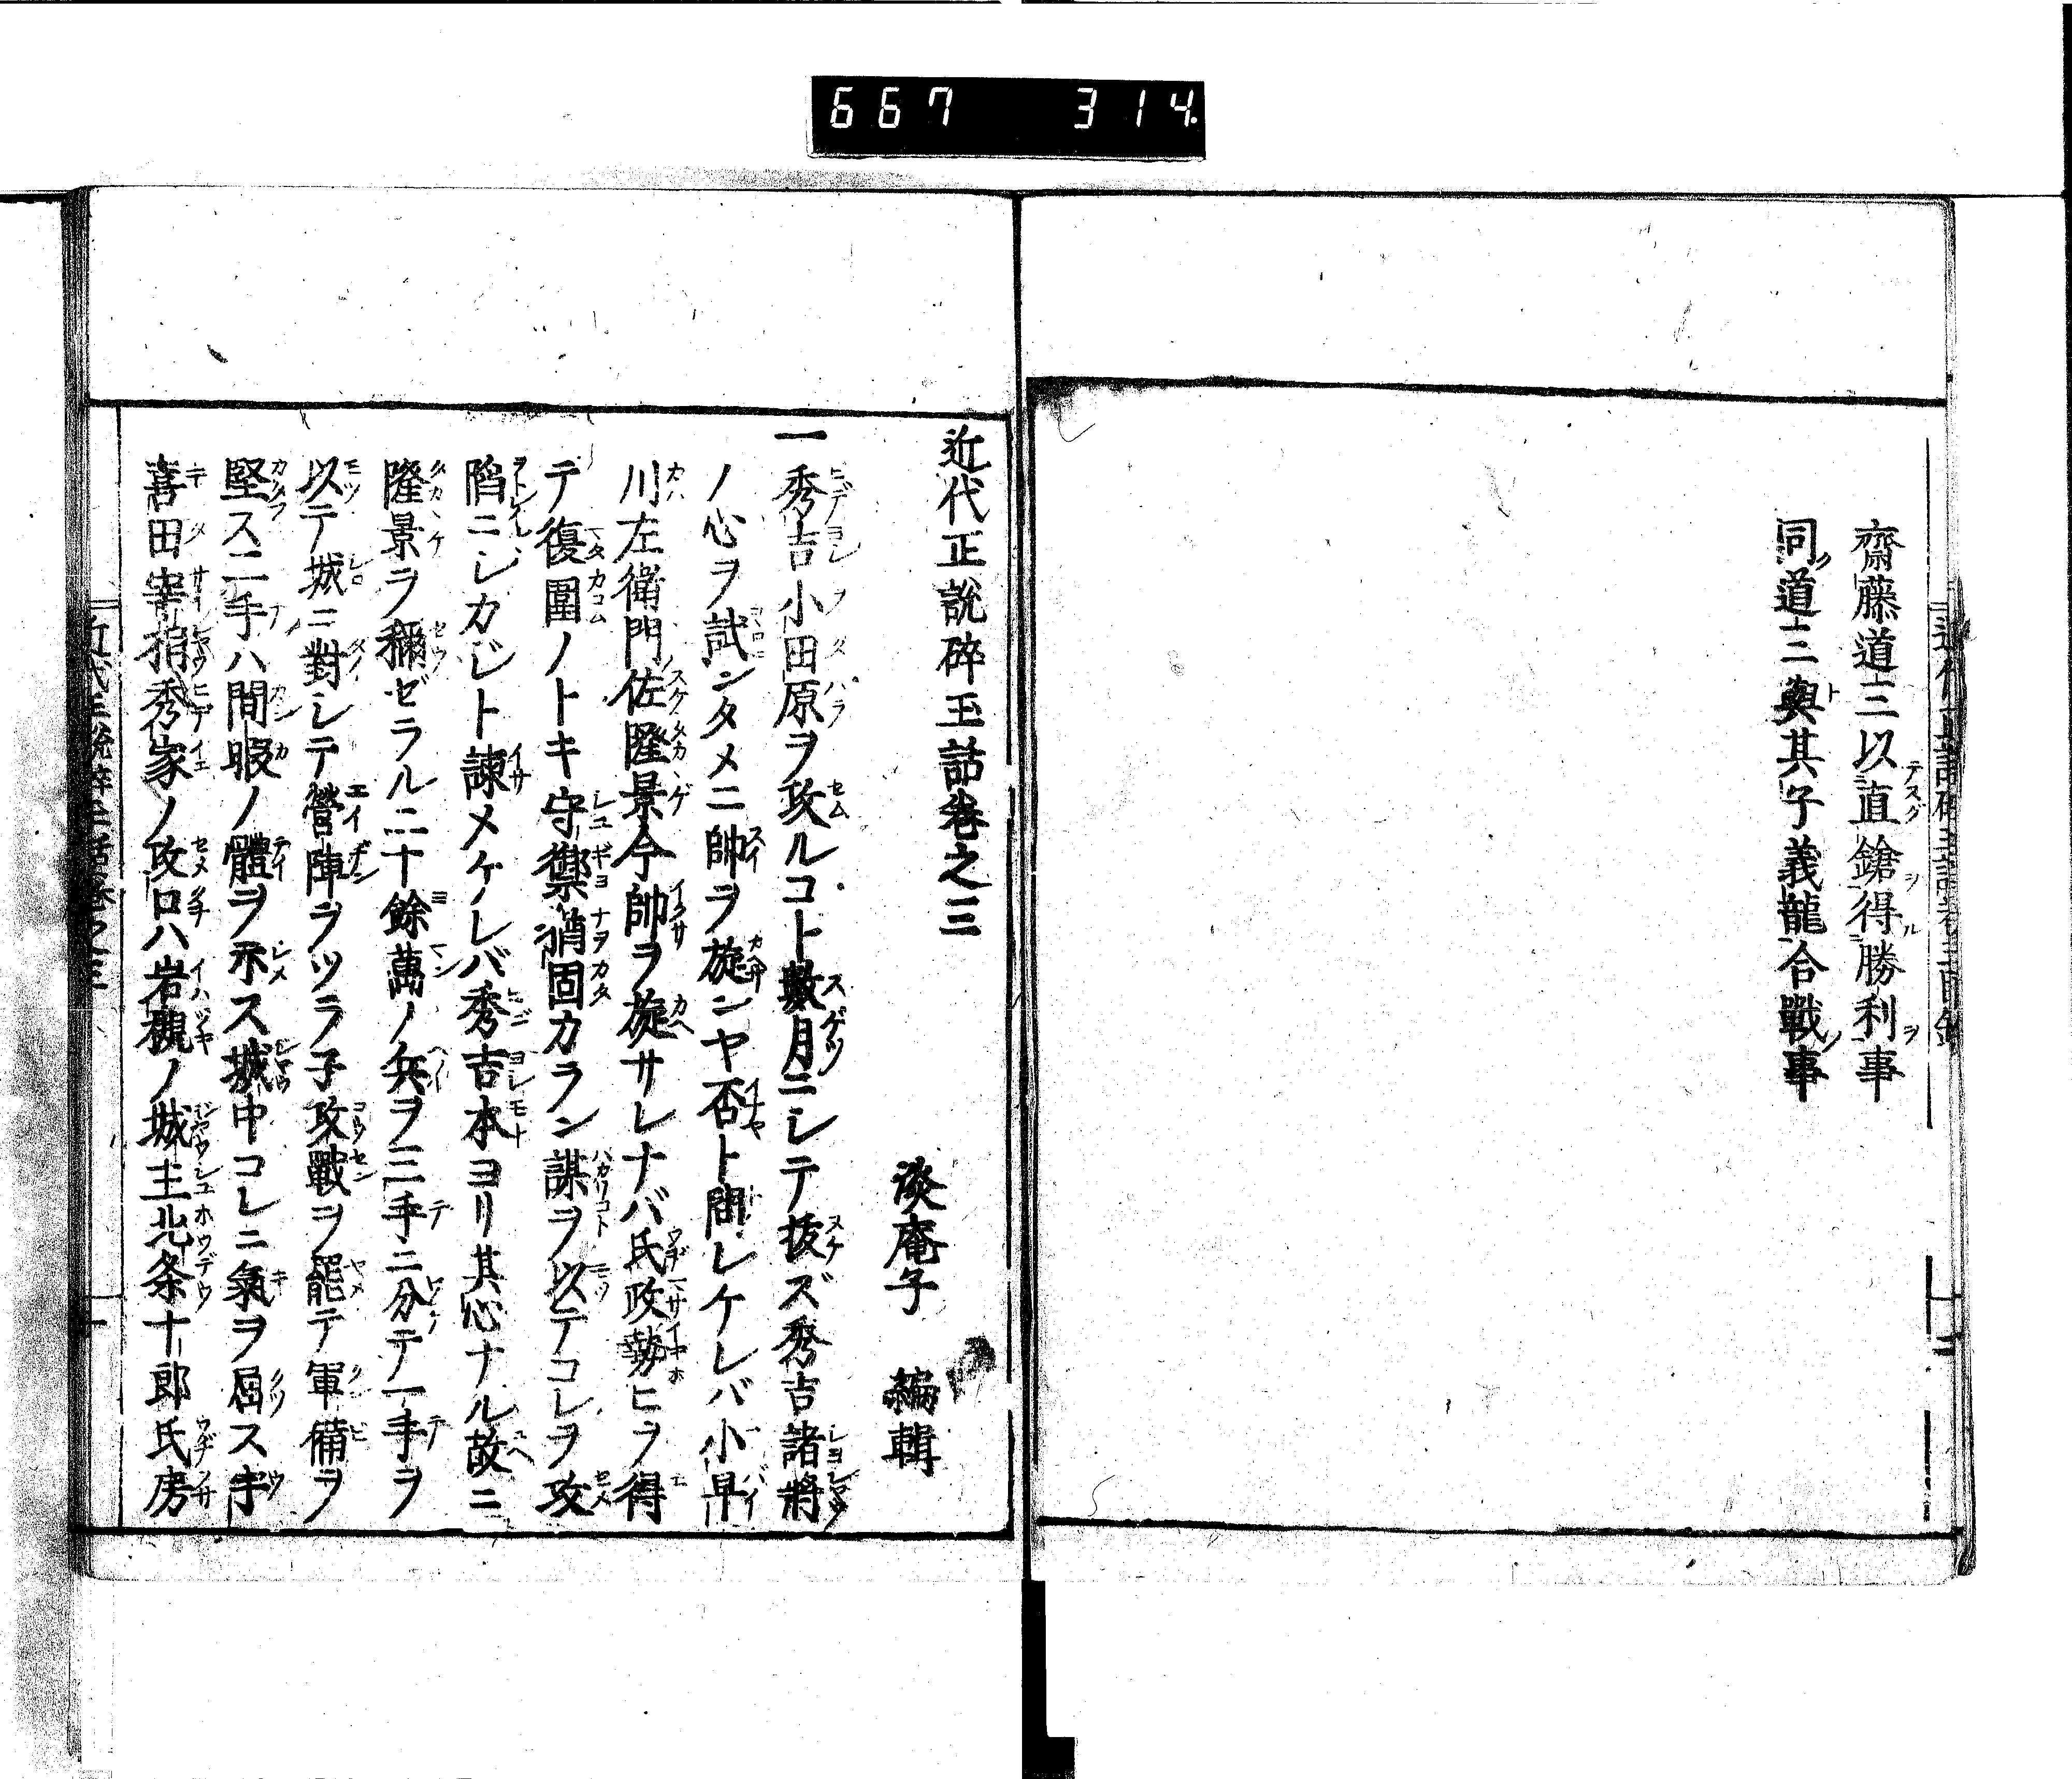 667 314.
齋藤道三以直鎗得勝利事
同道三與其子義龍合戰事
近代正說碎玉話卷之三
淡庵子 編輯
一秀吉小田原ヲ攻ルコト數月ニシテ拔ズ秀吉諸將
ノ心ヲ試ンタメニ帥ヲ旋ンヤ否ト問レケレバ小早
川左衛門佐隆景今帥ヲ旋サレナバ氏政勢ヒヲ得
テ復圍ノトキ守禦猶固カラン謀ヲ以テコレヲ攻
陷ニシカジト諫メケレバ秀吉本ヨリ其心ナル故ニ
隆景ヲ稱ゼラル二十餘萬ノ兵ヲ三手ニ分テ一手ヲ
以テ城ニ對シテ營陣ヲツラ子攻戰ヲ罷テ軍備ヲ
堅ス二手ハ間暇ノ體ヲ示ス城中コレニ氣ヲ屈ス宇
喜田宰相秀家ノ攻口ハ岩槻ノ城主北条十郎氏房